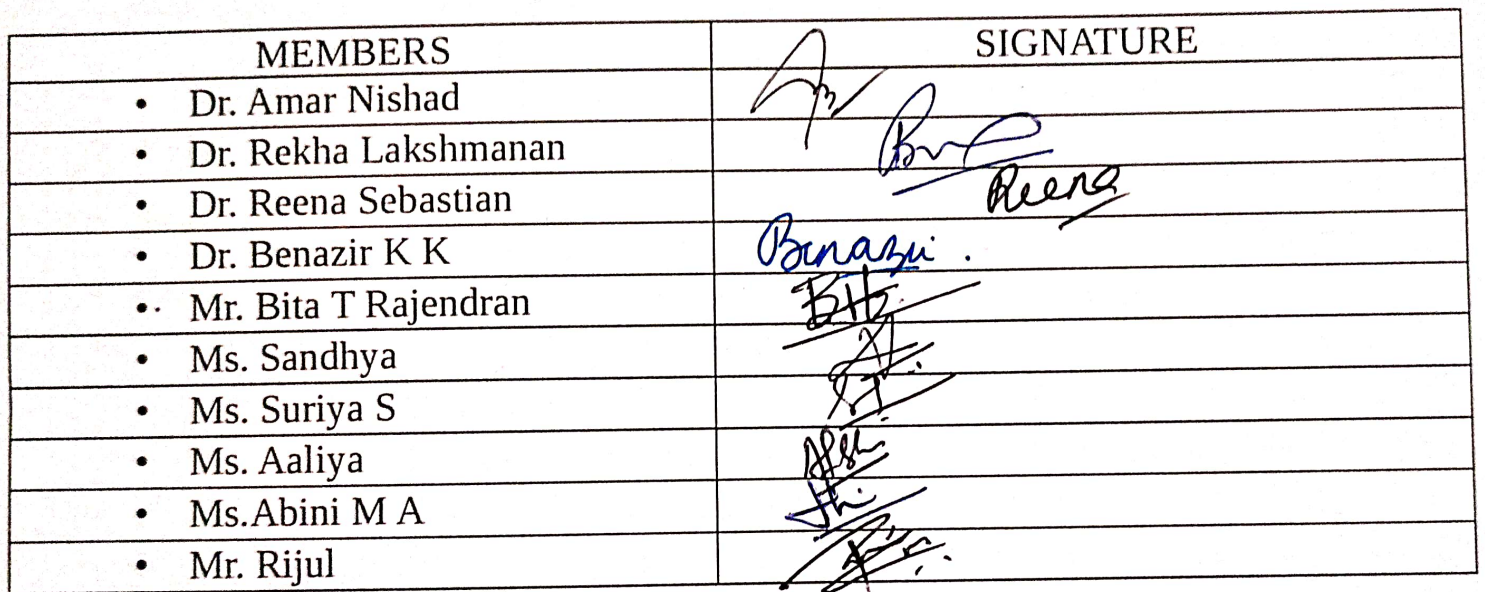 MEMBERS SIGNATURE
• Dr. Amar Nishad
• Dr. Rekha Lakshmanan
• Dr. Reena Sebastian Reena
• Dr. Benazir K K Benazir.
• Mr. Bita T Rajendran
• Ms. Sandhya
• Ms. Suriya S
• Ms. Aaliya
• Ms.Abini M A
• Mr. Rijul